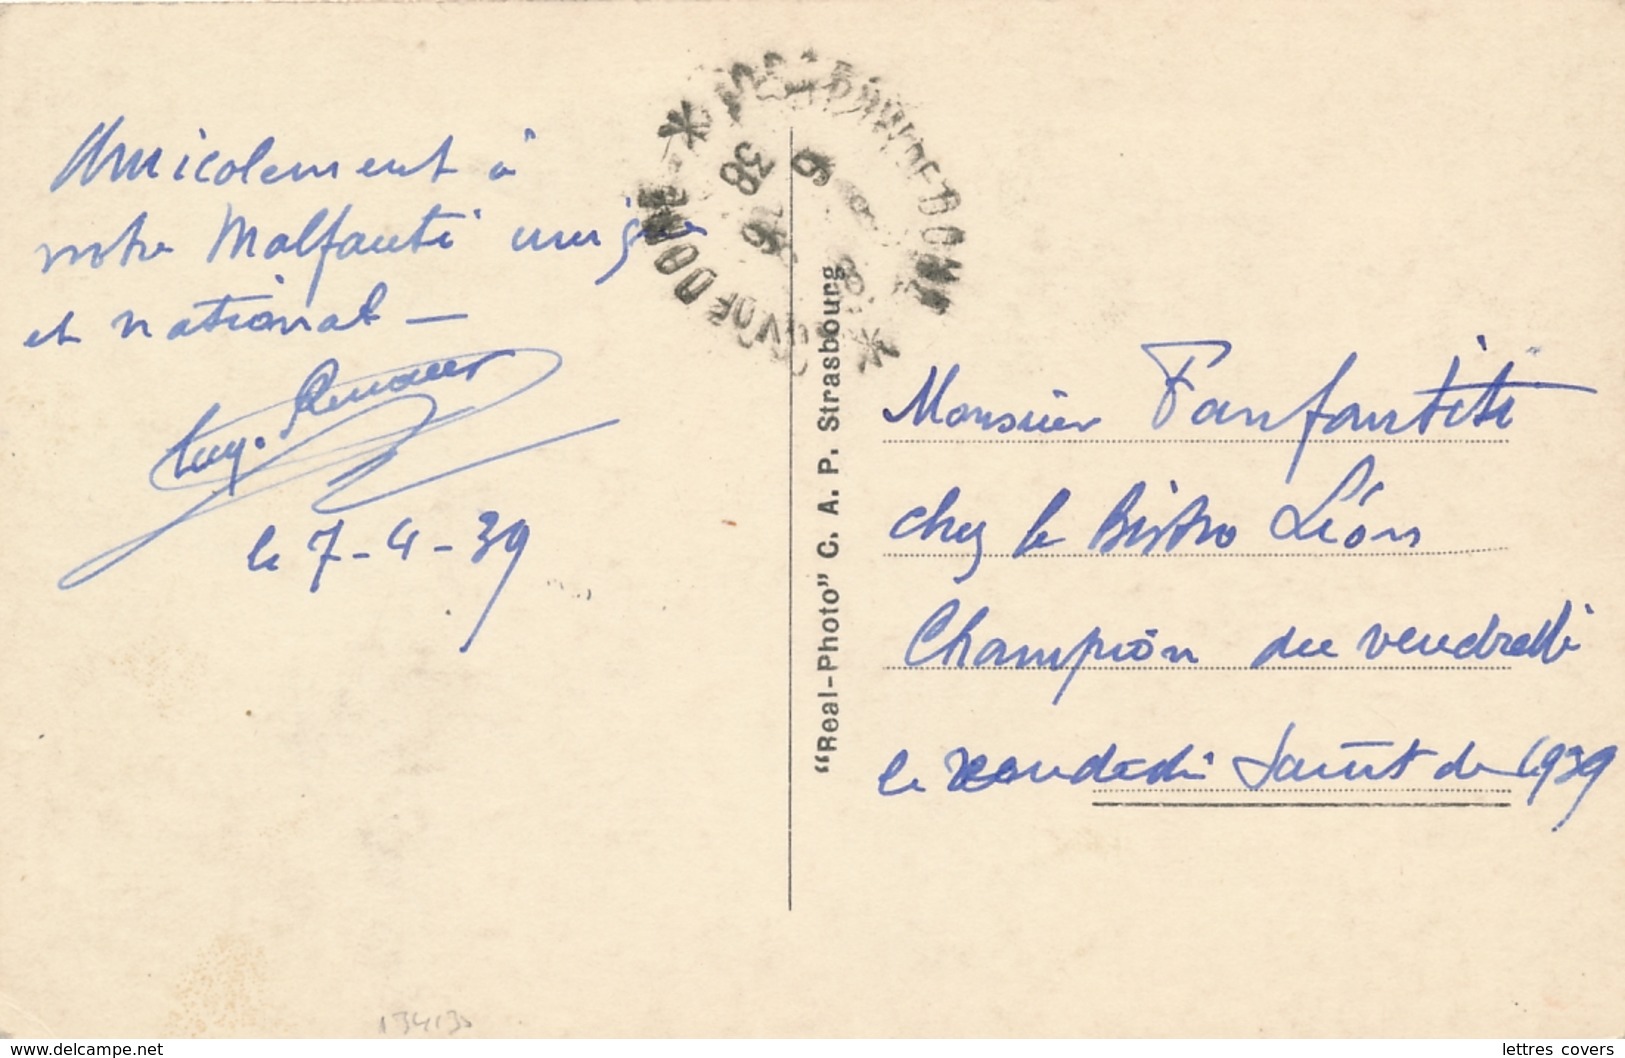 Amicalement à
notre Malfanti unique
et national —
le 7-4-39
38
"Real-Photo" C. A. P. Strasbourg
Monsieur Fanfantiti
chez le Bistro Léon
Champion du vendredi
le vendredi Saint de 1939
134130
www.delcampe.net
lettres_covers